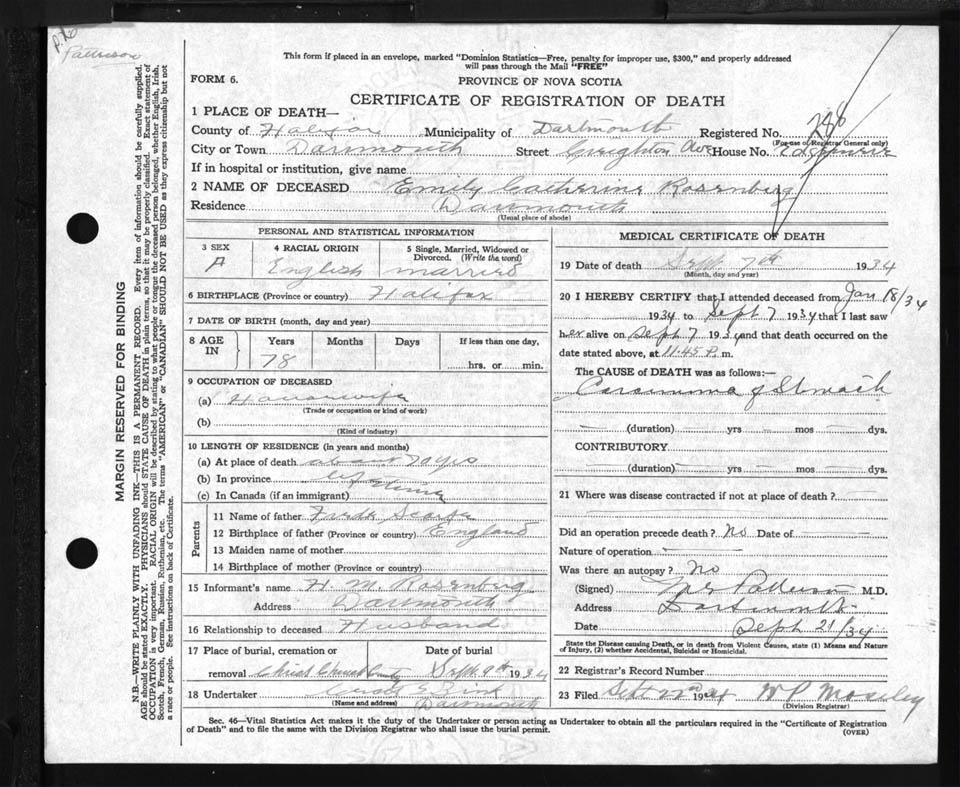 Pattison
This form if placed in an envelope, marked "Dominion Statistics—Free, penalty for improper use, $300," and properly addressed
will pass through the Mail "FREE"
FORM 6.
PROVINCE OF NOVA SCOTIA
CERTIFICATE OF REGISTRATION OF DEATH
1 PLACE OF DEATH—
County of Halifax Municipality of Dartmouth Registered No. 288
(For use of Registrar General only)
City or Town Dartmouth Street Creighton Ave House No.
If in hospital or institution, give name
2 NAME OF DECEASED Emily Catherine Rosenberg
Residence Dartmouth
(Usual place of abode)
PERSONAL AND STATISTICAL INFORMATION
3 SEX 4 RACIAL ORIGIN 5 Single, Married, Widowed or
Divorced. (Write the word)
F English married
6 BIRTHPLACE (Province or country) Halifax
7 DATE OF BIRTH (month, day and year)
8 AGE IN Years Months Days If less than one day,
78 hrs. or min.
9 OCCUPATION OF DECEASED
(a) Housewife
(Trade or occupation or kind of work)
(b)
(Kind of industry)
10 LENGTH OF RESIDENCE (in years and months)
(a) At place of death about 70 yrs
(b) In province lifetime
(c) In Canada (if an immigrant)
Parents
11 Name of father Fredk Scarfe
12 Birthplace of father (Province or country) England
13 Maiden name of mother
14 Birthplace of mother (Province or country)
15 Informant's name H. M. Rosenberg
Address Dartmouth
16 Relationship to deceased Husband
17 Place of burial, cremation or Date of burial
removal Christ Church Sept 9th 1934
18 Undertaker Zink
(Name and address) Dartmouth
MEDICAL CERTIFICATE OF DEATH
19 Date of death Sept 7th 1934
(Month, day and year)
20 I HEREBY CERTIFY that I attended deceased from Jan 18/34
1934 to Sept 7 1934 that I last saw
her alive on Sept 7 1934 and that death occurred on the
date stated above, at 11.45 P. m.
The CAUSE of DEATH was as follows:—
Carcinoma of Stomach
(duration) yrs mos dys.
CONTRIBUTORY
(duration) yrs mos dys.
21 Where was disease contracted if not at place of death?
Did an operation precede death? No Date of
Nature of operation
Was there an autopsy? No
(Signed) M.D.
Address Dartmouth
Date Sept 21/34
State the Disease causing Death, or in death from Violent Causes, state (1) Means and Nature
of Injury, (2) whether Accidental, Suicidal or Homicidal.
22 Registrar's Record Number
23 Filed Sept 22nd 1934 W P Moseley
(Division Registrar)
Sec. 46—Vital Statistics Act makes it the duty of the Undertaker or person acting as Undertaker to obtain all the particulars required in the "Certificate of Registration
of Death" and to file the same with the Division Registrar who shall issue the burial permit.
(OVER)
MARGIN RESERVED FOR BINDING
N.B.—WRITE PLAINLY WITH UNFADING INK—THIS IS A PERMANENT RECORD. Every item of information should be carefully supplied.
AGE should be stated EXACTLY. PHYSICIANS should STATE CAUSE OF DEATH in plain terms, so that it may be properly classified. Exact statement of
OCCUPATION is very important. RACIAL ORIGIN will be described by stating to what people or tongue the deceased person belonged, whether English, Irish,
Scotch, French, German, Russian, Ruthenian, etc. The terms "AMERICAN" or "CANADIAN" SHOULD NOT BE USED as they express citizenship but not
a race or people. See instructions on back of Certificate.